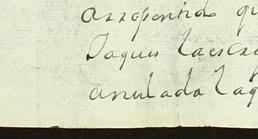 arrepentid q
Saques la escr
anulada la q